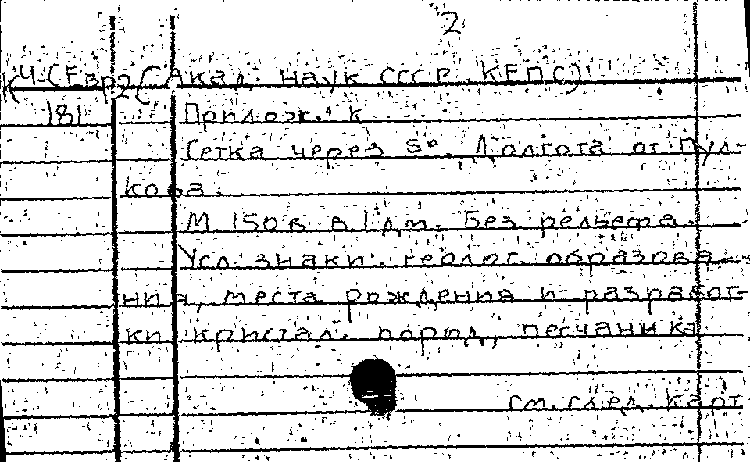 2
К Ч (Евр2 (Акад. наук СССР. КЕПС)
181 Прилож. к
Сетка через 5°. Долгота от Пул-
кова.
М 150 в. в 1 дм. Без рельефа.
Усл. знаки: геолог. образова-
ния, места рождения и разработ-
ки кристал. пород, песчаника
см. след. карт